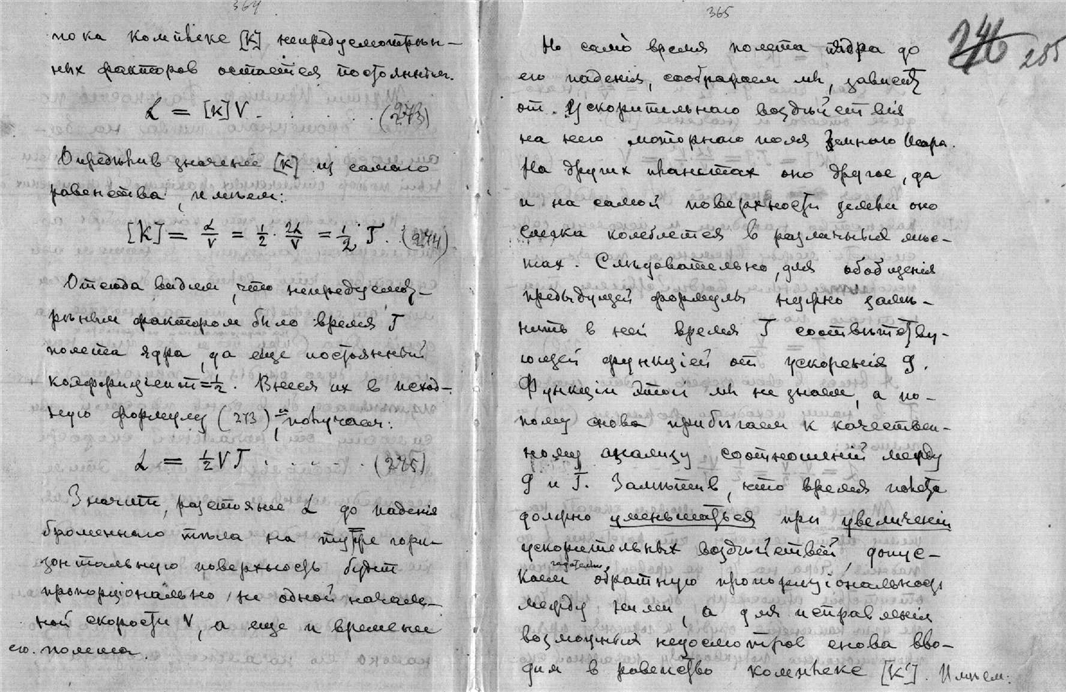 364
пока комплекс [K] непредусмотрѣн-
ных факторов остается постоянным.
L = [K] V . . . . . . (273)
Опредѣлив значеніе [K] из самаго
равенства, имѣем:
[K] = L/V = 1/2 · 2L/V = 1/2 T. (274)
Отсюда видим, что непредусмот-
рѣнным фактором было время T
полета ядра, да еще постоянный
коэффиціент = 1/2. Внеся их в исход-
ную формулу (273), получаем:
L = 1/2 VT . . . . . (275)
Значит, разстояніе L до паденія
брошеннаго тѣла на ту же гори-
зонтальную поверхность будет
пропорціонально не одной началь-
ной скорости V, а еще и времени
его полета.
365
246 255
Но само время полета ядра до
его паденія, соображаем мы, зависит
от ускорительнаго воздѣйствія
на него моторнаго поля земного шара.
На других планетах оно другое, да
и на самой поверхности земли оно
слегка колеблется в различных мѣс-
тах. Слѣдовательно, для обобщенія
предыдущей формулы нужно замѣ-
нить в ней время T соотвѣтству-
ющей функціей от ускоренія g.
Функціи этой мы не знаем, а по-
тому снова прибѣгаем к качествен-
ному анализу соотношеній между
g и T. Замѣтив, что время полета
должно уменьшаться при увеличеніи
ускорительных воздѣйствій, допус-
каем обратную пропорціональность
между ними, а для исправленія
возможных недосмотров снова вво-
дим в равенство комплекс [K']. Имѣем: